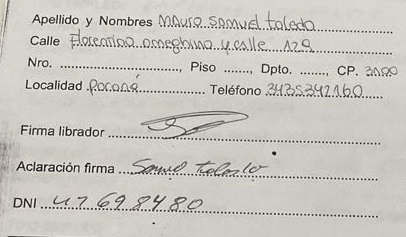 Apellido y Nombres Mauro Samuel toledo
Calle Florentino ameghino y calle 129
Nro. ...................., Piso ......., Dpto. ......., CP. 3100
Localidad Paraná Teléfono 3435342160
Firma librador
Aclaración firma Samuel toledo
DNI 47698480